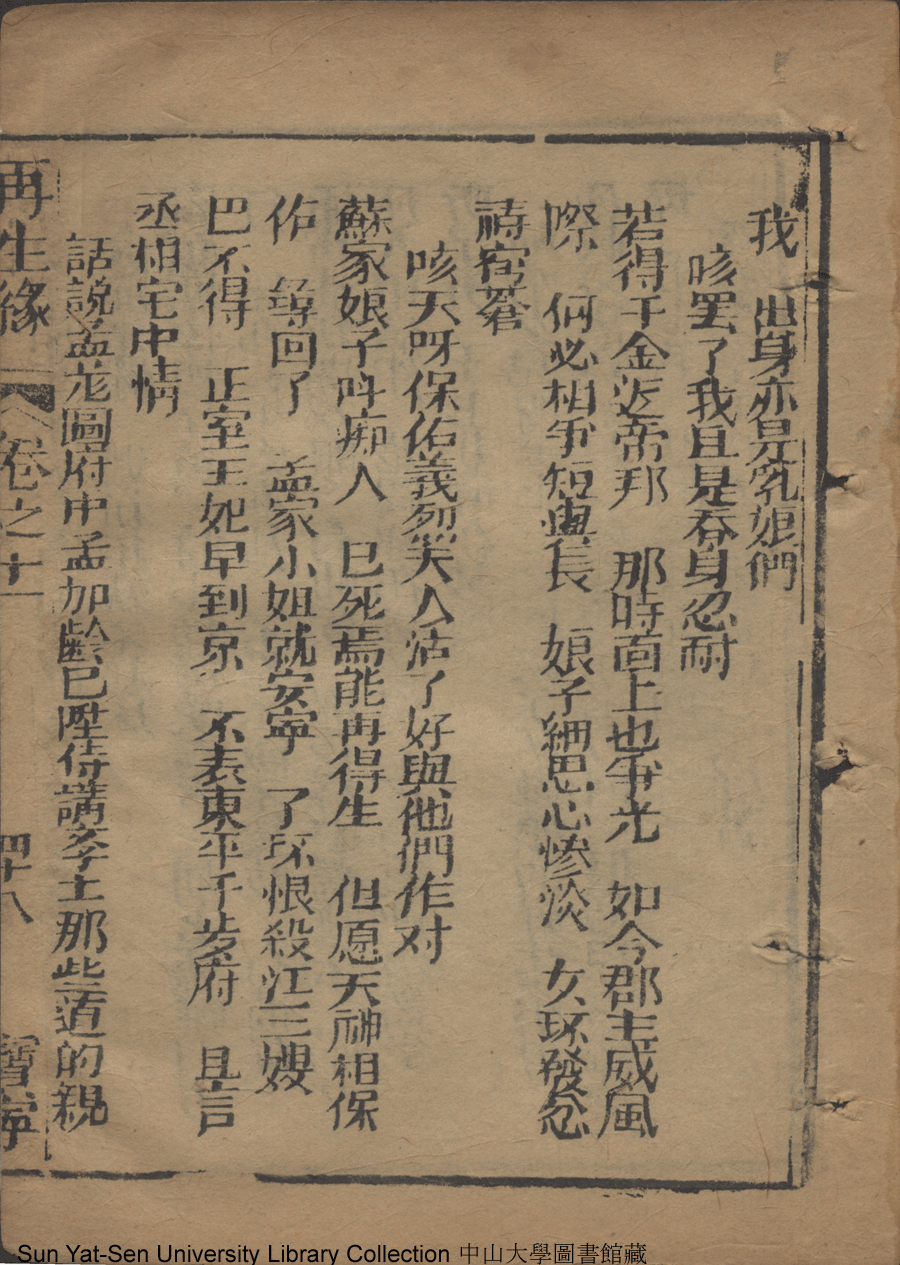 我　出身亦是乳娘們
咳罢了我且是吞身忍耐
若得千金返帝邦　那時面上也爭光　如今郡主威風
際　何必相爭短與長　娘子細思心慘淡　女环發忿
禱穹蒼
咳天呀保佑義烈夫人活了好與他們作对
蘇家娘子呌痴人　已死焉能再得生　但愿天神相保
佑　尋回了　孟家小姐就安寧　了环恨殺江三嫂
巴不得　正室王妃早到京　不表東平千步府　且言
丞相宅中情
話說孟龙圖府中孟加齡已陞侍講孝士那些道的親
再生緣　卷之十一　四十八　寶寧
Sun Yat-Sen University Library Collection 中山大學圖書館藏